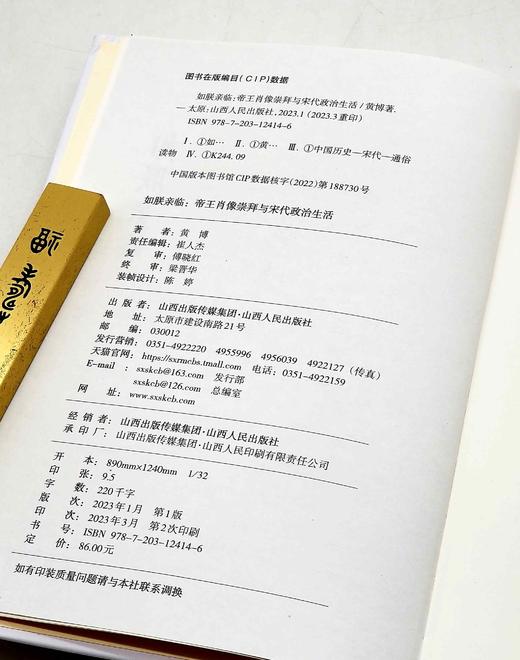 图书在版编目(CIP)数据
如朕亲临:帝王肖像崇拜与宋代政治生活/黄博著.
—太原:山西人民出版社,2023.1(2023.3重印)
ISBN 978-7-203-12414-6
Ⅰ.①如… Ⅱ.①黄… Ⅲ.①中国历史—宋代—通俗
读物 Ⅳ.①K244.09
中国版本图书馆CIP数据核字(2022)第188730号
如朕亲临:帝王肖像崇拜与宋代政治生活
著 者:黄 博
责任编辑:崔人杰
复 审:傅晓红
终 审:梁晋华
装帧设计:陈 婷
出 版 者:山西出版传媒集团·山西人民出版社
地 址:太原市建设南路21号
邮 编:030012
发行营销:0351-4922220 4955996 4956039 4922127(传真)
天猫官网:https://sxrmcbs.tmall.com 电话:0351-4922159
E-mail:sxskcb@163.com 发行部
sxskcb@126.com 总编室
网 址:www.sxskcb.com
经 销 者:山西出版传媒集团·山西人民出版社
承 印 厂:山西出版传媒集团·山西人民印刷有限责任公司
开 本:890mm×1240mm 1/32
印 张:9.5
字 数:220千字
版 次:2023年1月 第1版
印 次:2023年3月 第2次印刷
书 号:ISBN 978-7-203-12414-6
定 价:86.00元
如有印装质量问题请与本社联系调换